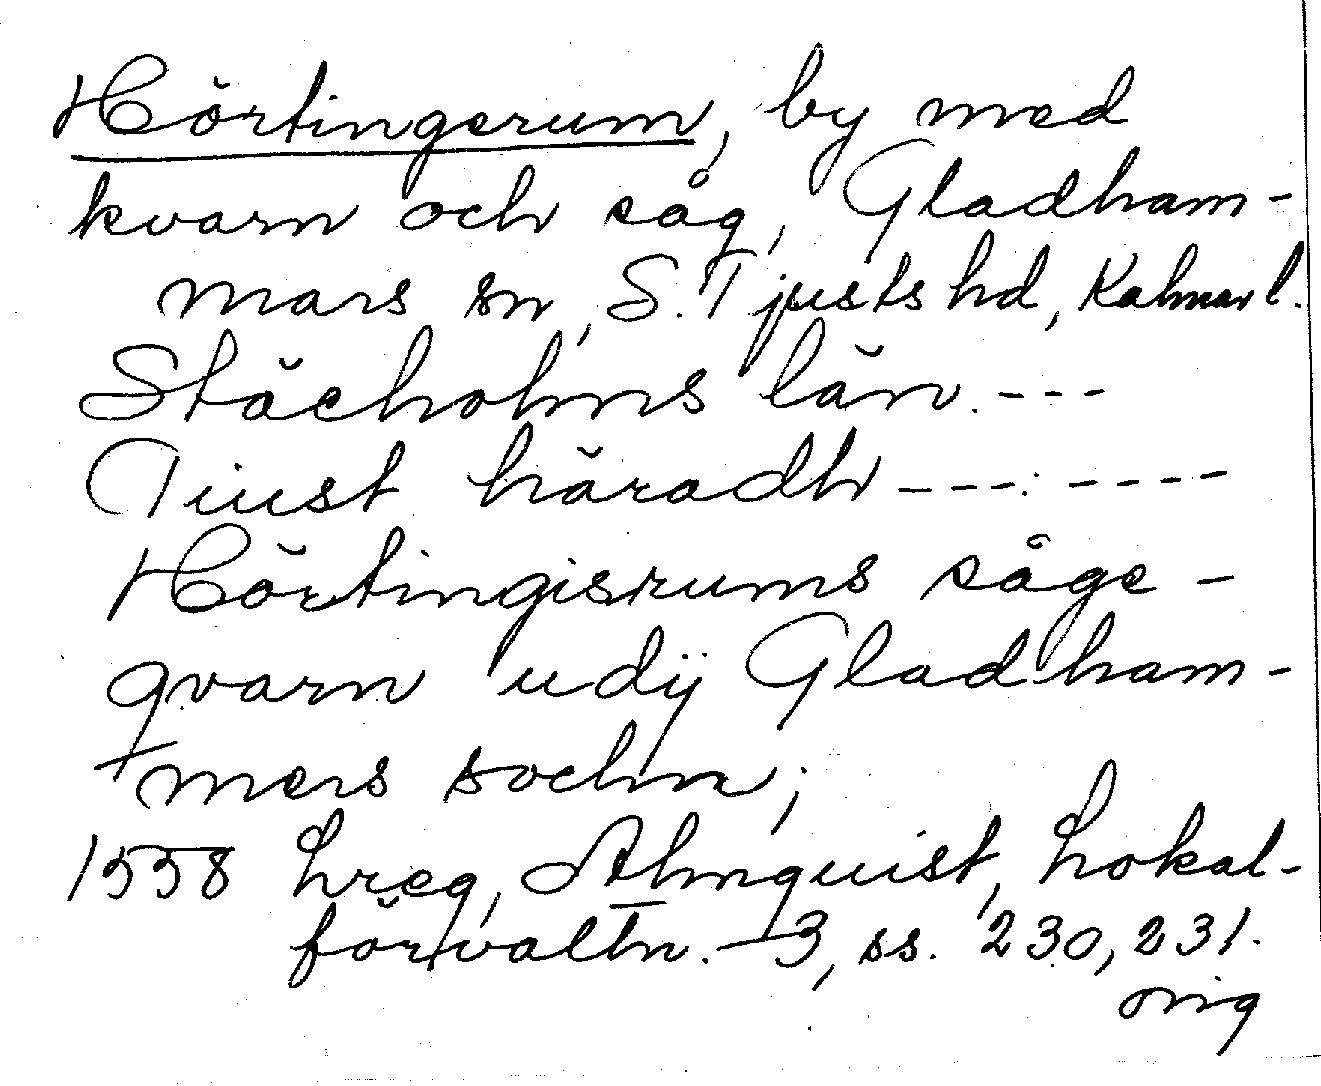 Hörtingerum, by med
kvarn och såg, Gladham-
mars sn, S. Tjusts hd, Kalmar l.
Stächolms län. ---
Tiust häradh ---. ----
Hörtingisrums såge-
qvarn udÿ Gladham-
mers sochn;
1558 Lreg, Almquist, Lokal-
förvaltn. 3, ss. 230, 231.
orig